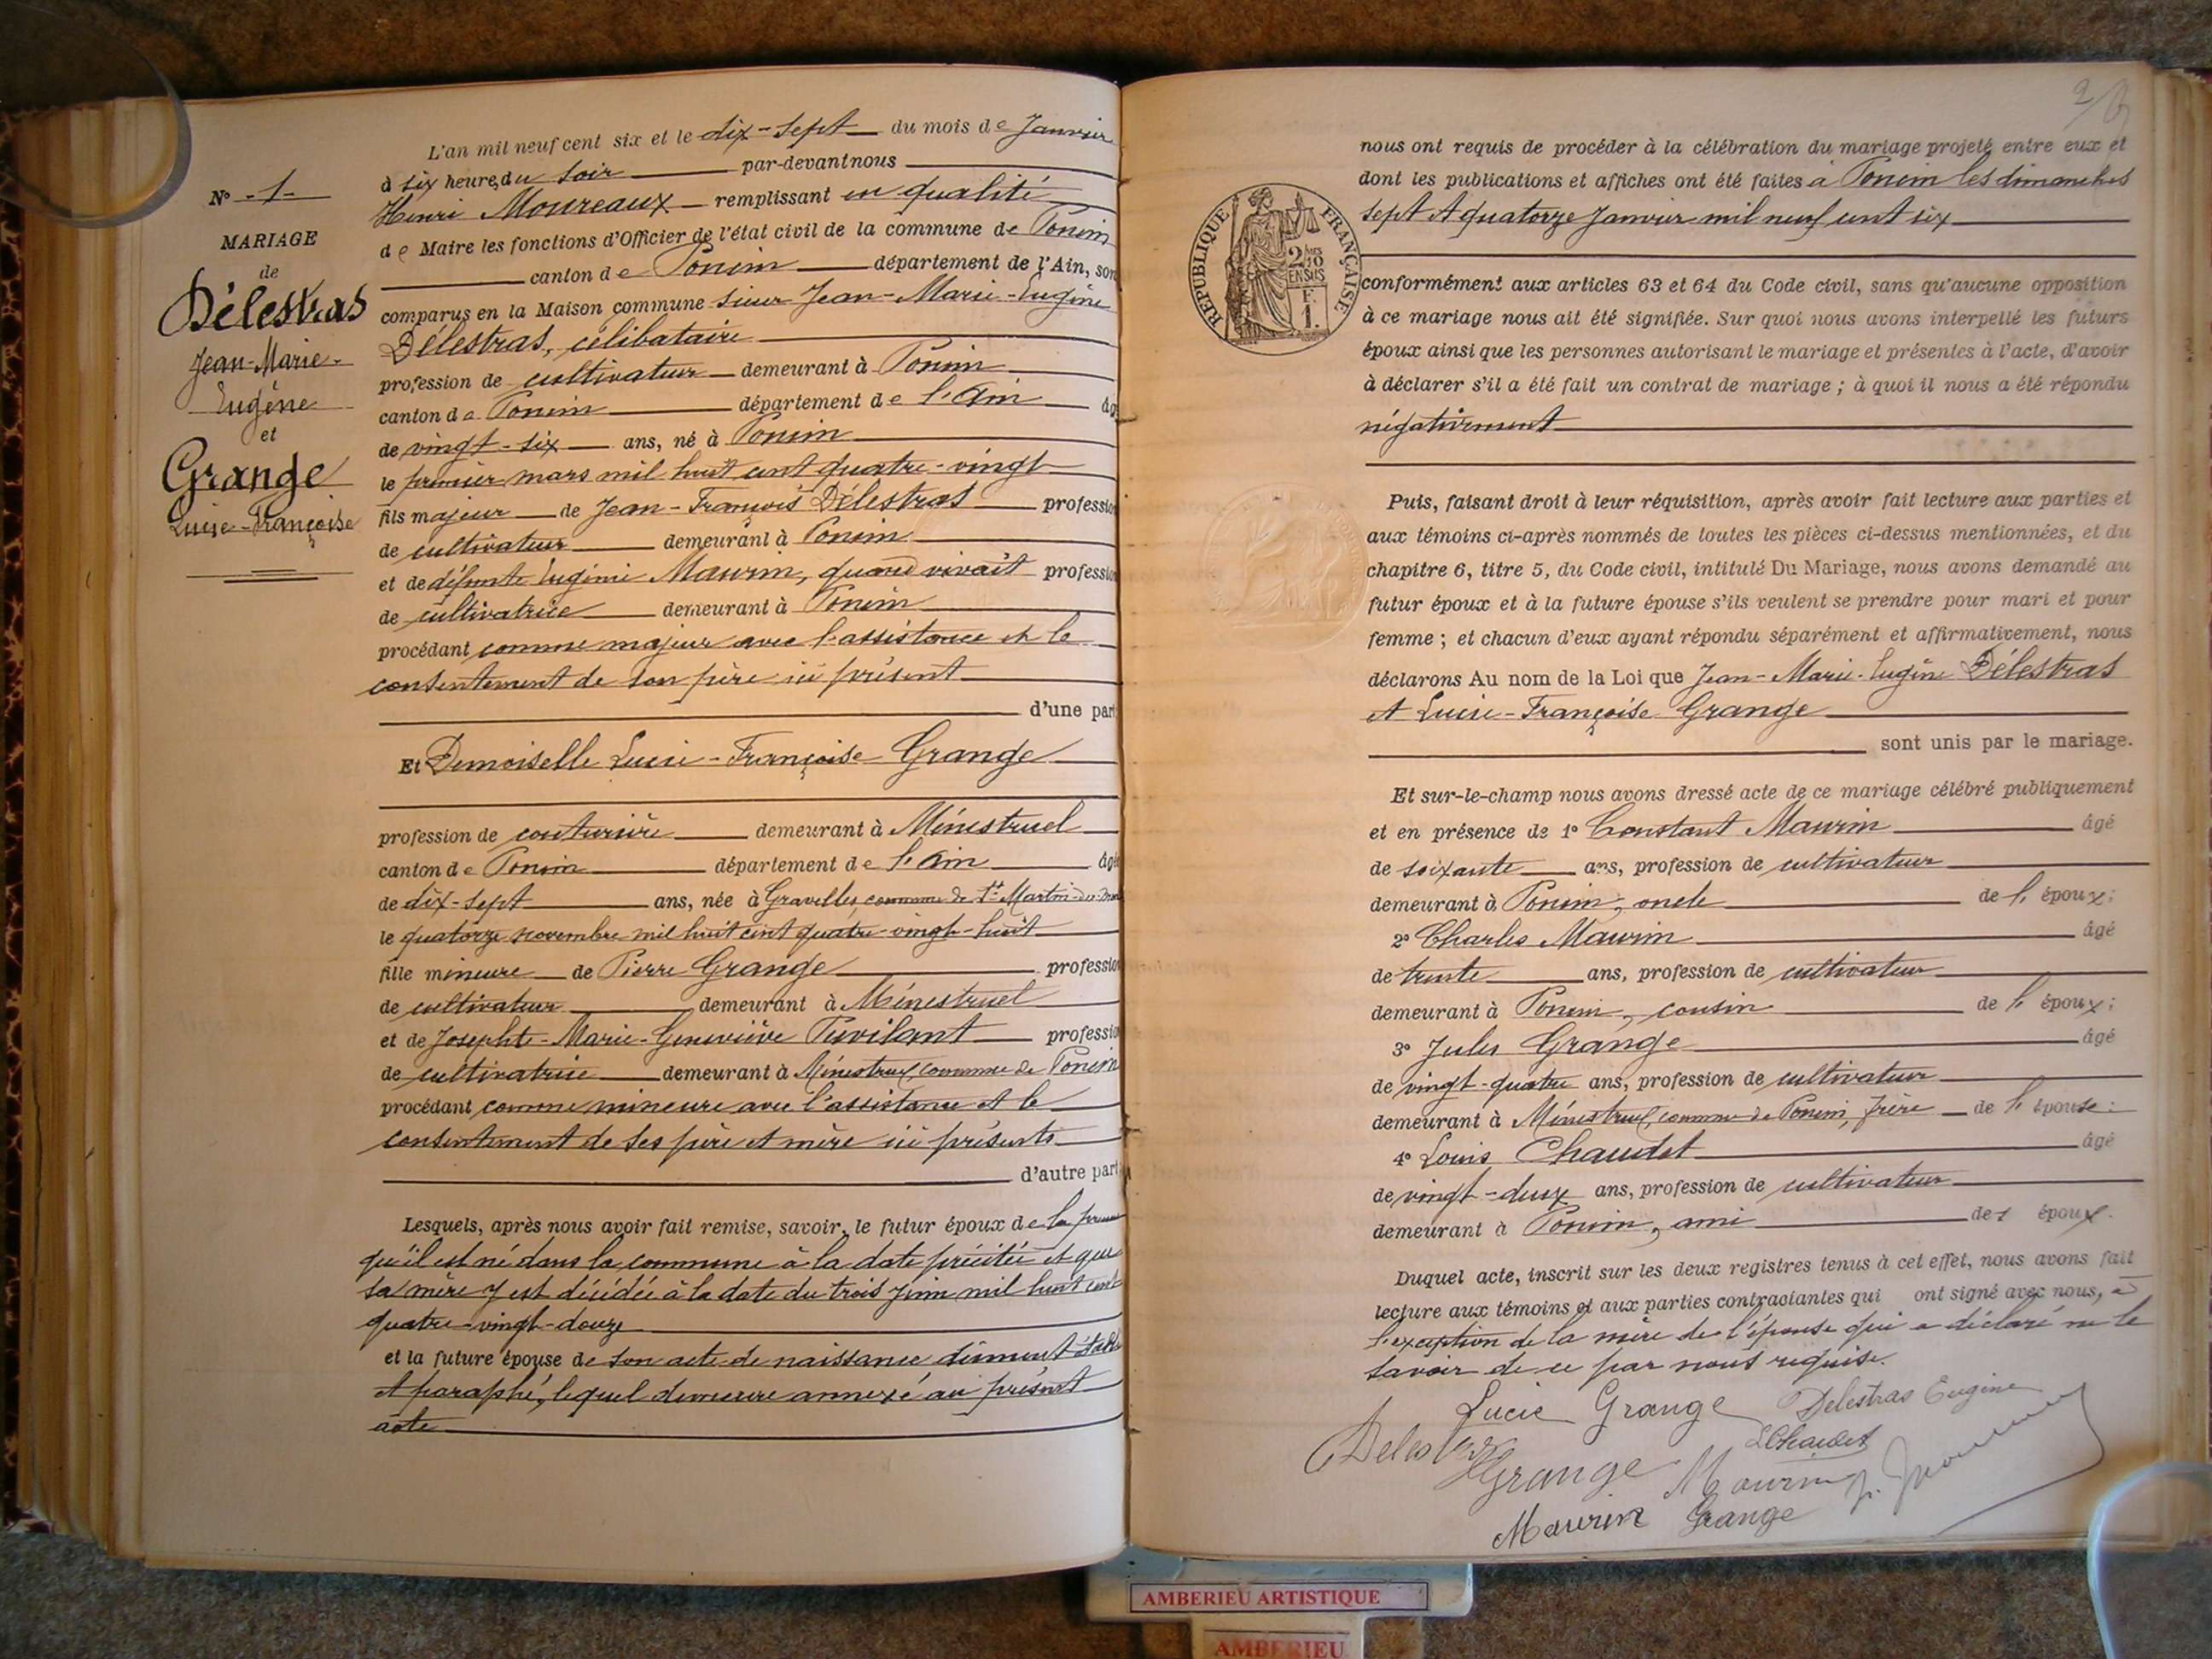 N° - 1 -
MARIAGE
de
Délestras
Jean-Marie-
Eugène
et
Grange
Lucie-Françoise
L'an mil neuf cent six et le dix-sept du mois de Janvier
à six heures du soir par-devant nous
Henri Moureaux remplissant en qualité
de Maire les fonctions d'Officier de l'état civil de la commune de Poncin
canton de Poncin département de l'Ain, son
comparus en la Maison commune sieur Jean-Marie-Eugène
Délestras, célibataire
profession de cultivateur demeurant à Poncin
canton de Poncin département de l'Ain âg
de vingt-six ans, né à Poncin
le premier mars mil huit cent quatre-vingt
fils majeur de Jean-François Délestras profession
de cultivateur demeurant à Poncin
et de défunte Eugénie Maurin, quand vivait profession
de cultivatrice demeurant à Poncin
procédant comme majeur avec l'assistance et le
consentement de son père ici présent
d'une part
Et Demoiselle Lucie-Françoise Grange
profession de couturière demeurant à Ménestruel
canton de Poncin département de l'Ain âgé
de dix-sept ans, née à Gravelles, commune de St Martin-du-Mont
le quatorze novembre mil huit cent quatre-vingt-huit
fille mineure de Pierre Grange profession
de cultivateur demeurant à Ménestruel
et de Josephte-Marie-Geneviève Puvilant profession
de cultivatrice demeurant à Ménestruel, commune de Poncin
procédant comme mineure avec l'assistance et le
consentement de ses père et mère ici présents
d'autre part
Lesquels, après nous avoir fait remise, savoir, le futur époux de la preuve
qu'il est né dans la commune à la date précitée et que
sa mère y est décédée à la date du trois Juin mil huit cent
quatre-vingt-douze
et la future épouse de son acte de naissance dûment établi
et paraphé, lequel demeure annexé au présent
acte
2
nous ont requis de procéder à la célébration du mariage projeté entre eux et
dont les publications et affiches ont été faites à Poncin les dimanches
sept et quatorze Janvier mil neuf cent six
REPUBLIQUE FRANÇAISE
2/10 EN SUS
F. 1.
conformément aux articles 63 et 64 du Code civil, sans qu'aucune opposition
à ce mariage nous ait été signifiée. Sur quoi nous avons interpellé les futurs
époux ainsi que les personnes autorisant le mariage et présentes à l'acte, d'avoir
à déclarer s'il a été fait un contrat de mariage ; à quoi il nous a été répondu
négativement
Puis, faisant droit à leur réquisition, après avoir fait lecture aux parties et
aux témoins ci-après nommés de toutes les pièces ci-dessus mentionnées, et du
chapitre 6, titre 5, du Code civil, intitulé Du Mariage, nous avons demandé au
futur époux et à la future épouse s'ils veulent se prendre pour mari et pour
femme ; et chacun d'eux ayant répondu séparément et affirmativement, nous
déclarons Au nom de la Loi que Jean-Marie-Eugène Délestras
et Lucie-Françoise Grange
sont unis par le mariage.
Et sur-le-champ nous avons dressé acte de ce mariage célébré publiquement
et en présence de 1° Constant Maurin âgé
de soixante ans, profession de cultivateur
demeurant à Poncin, oncle de l'époux;
2° Charles Maurin âgé
de trente ans, profession de cultivateur
demeurant à Poncin, cousin de l'époux;
3° Jules Grange âgé
de vingt-quatre ans, profession de cultivateur
demeurant à Ménestruel, commune de Poncin, frère de l'épouse:
4° Louis Chaudet âgé
de vingt-deux ans, profession de cultivateur
demeurant à Poncin, ami de l époux.
Duquel acte, inscrit sur les deux registres tenus à cet effet, nous avons fait
lecture aux témoins et aux parties contractantes qui ont signé avec nous, à
l'exception de la mère de l'épouse qui a déclaré ne le
savoir de ce par nous requise.
Lucie Grange Delestras Eugène
Delestras LChaudet
Grange Maurin
Maurin Grange
AMBERIEU ARTISTIQUE
AMBERIEU